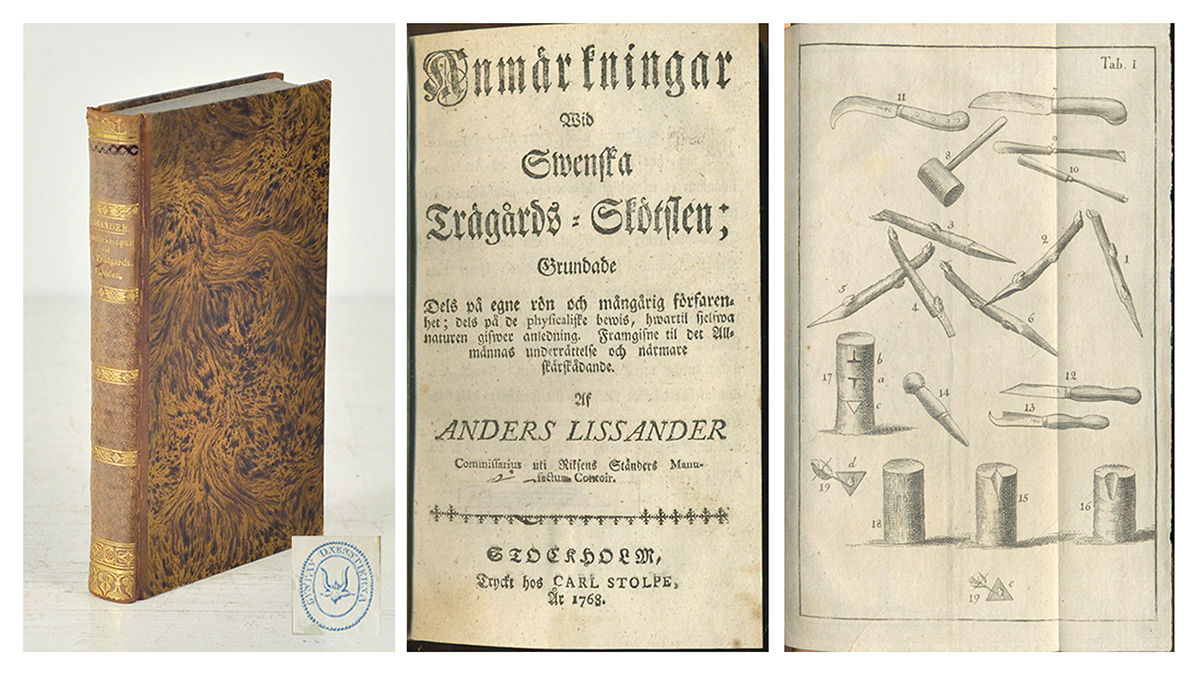 LISSANDER.
Anmärkningar
Trädgårds-
Skötslen.
GUSTAV OXENSTIERNA
Anmärkningar
Wid
Swenska
Trägårds-Skötslen;
Grundade
Dels på egne rön och mångårig förfaren-
het; dels på de physicaliske bewis, hwartil sjelfwa
naturen gifwer anledning. Framgifne til det All-
männas underrättelse och närmare
skärskådande.
Af
ANDERS LISSANDER
Commissarius uti Riksens Ständers Manu-
factur-Contoir.
STOCKHOLM,
Tryckt hos CARL STOLPE,
År 1768.
Tab. I
11
7
8
9
10
3
2
1
5
4
6
17
b
a
c
14
12
13
19
d
18
15
16
19
e